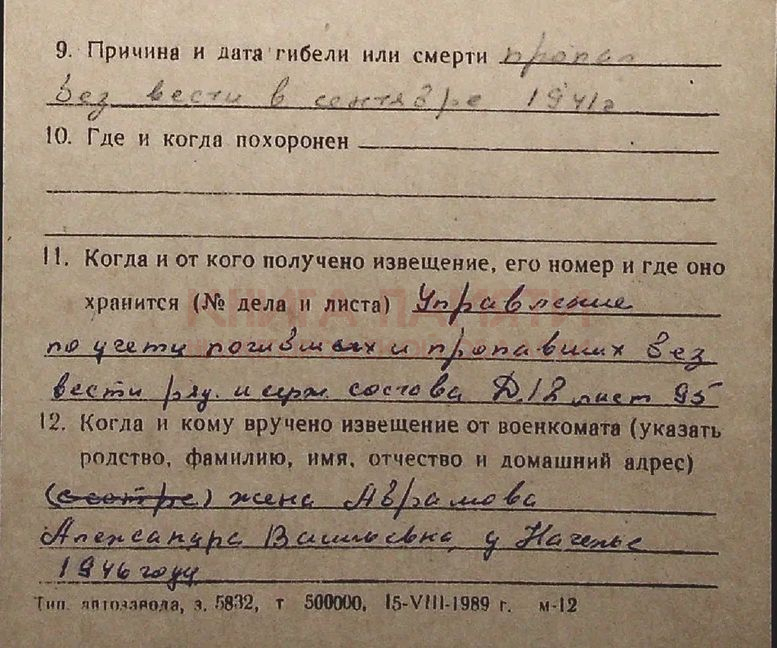 9. Причина и дата гибели или смерти пропал
без вести в сентябре 1941г
10. Где и когда похоронен
11. Когда и от кого получено извещение, его номер и где оно
хранится (№ дела и листа) Управление
по учету погибших и пропавших без
вести ряд. и серж. состава Д. 12 лист 95
12. Когда и кому вручено извещение от военкомата (указать
родство, фамилию, имя, отчество и домашний адрес)
(сестре) жена Абрамова
Александра Васильевна
1946 году
Тип. автозавода, з. 5832, т 500000, 15-VIII-1989 г. м-12
КНИГА ПАМЯТИ